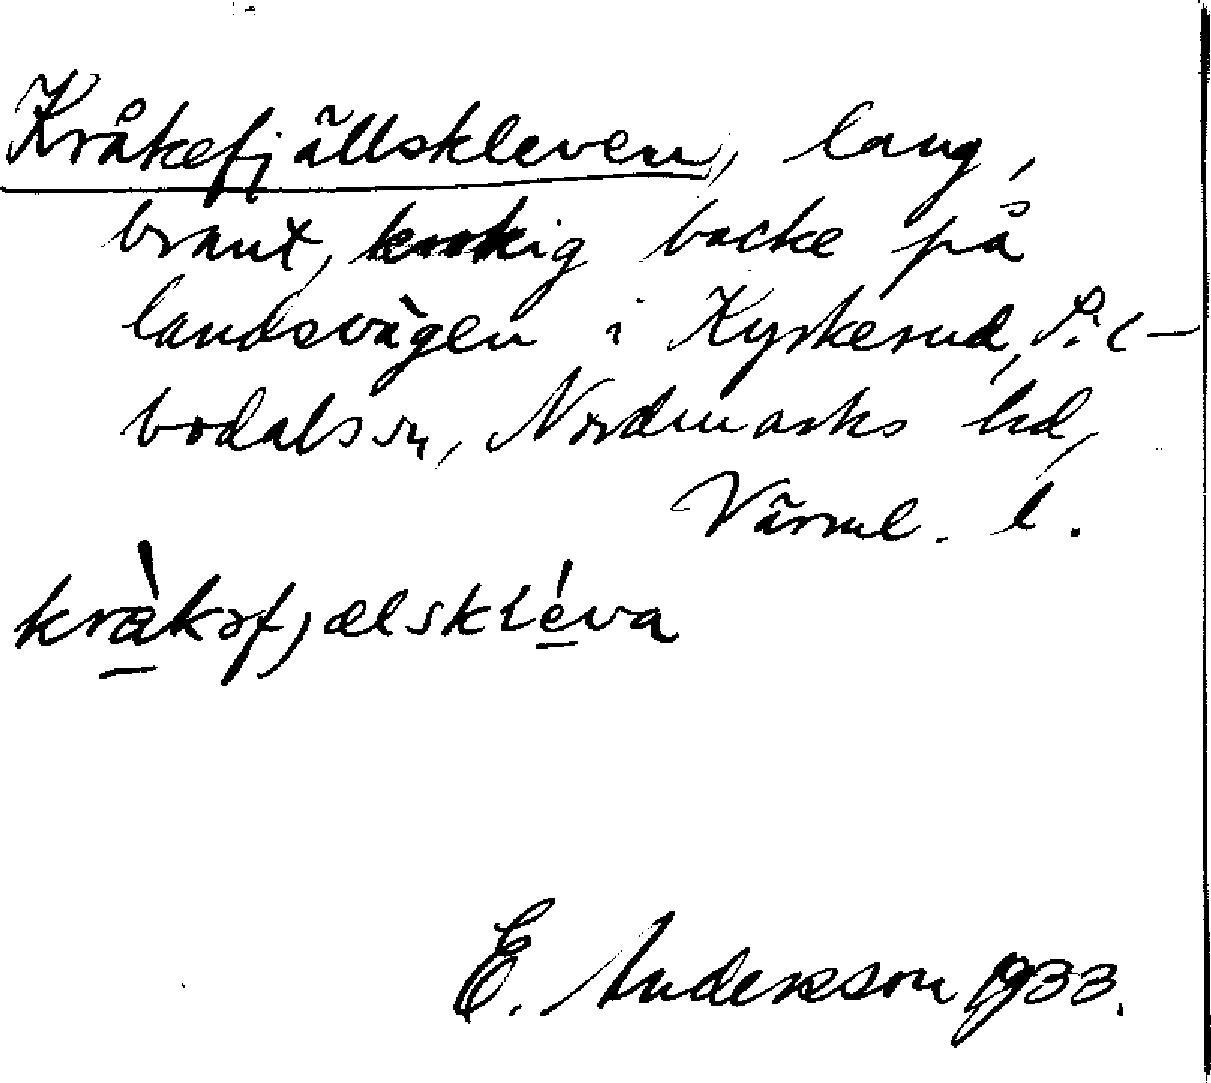 Kråkefjällskleven, lang,
brant, krokig backe på
landsvägen i Kyrkerud, Sil-
bodals sn, Nordmarks hd,
Värml. l.
kràkəfjælskléva
E. Andersson 1933.